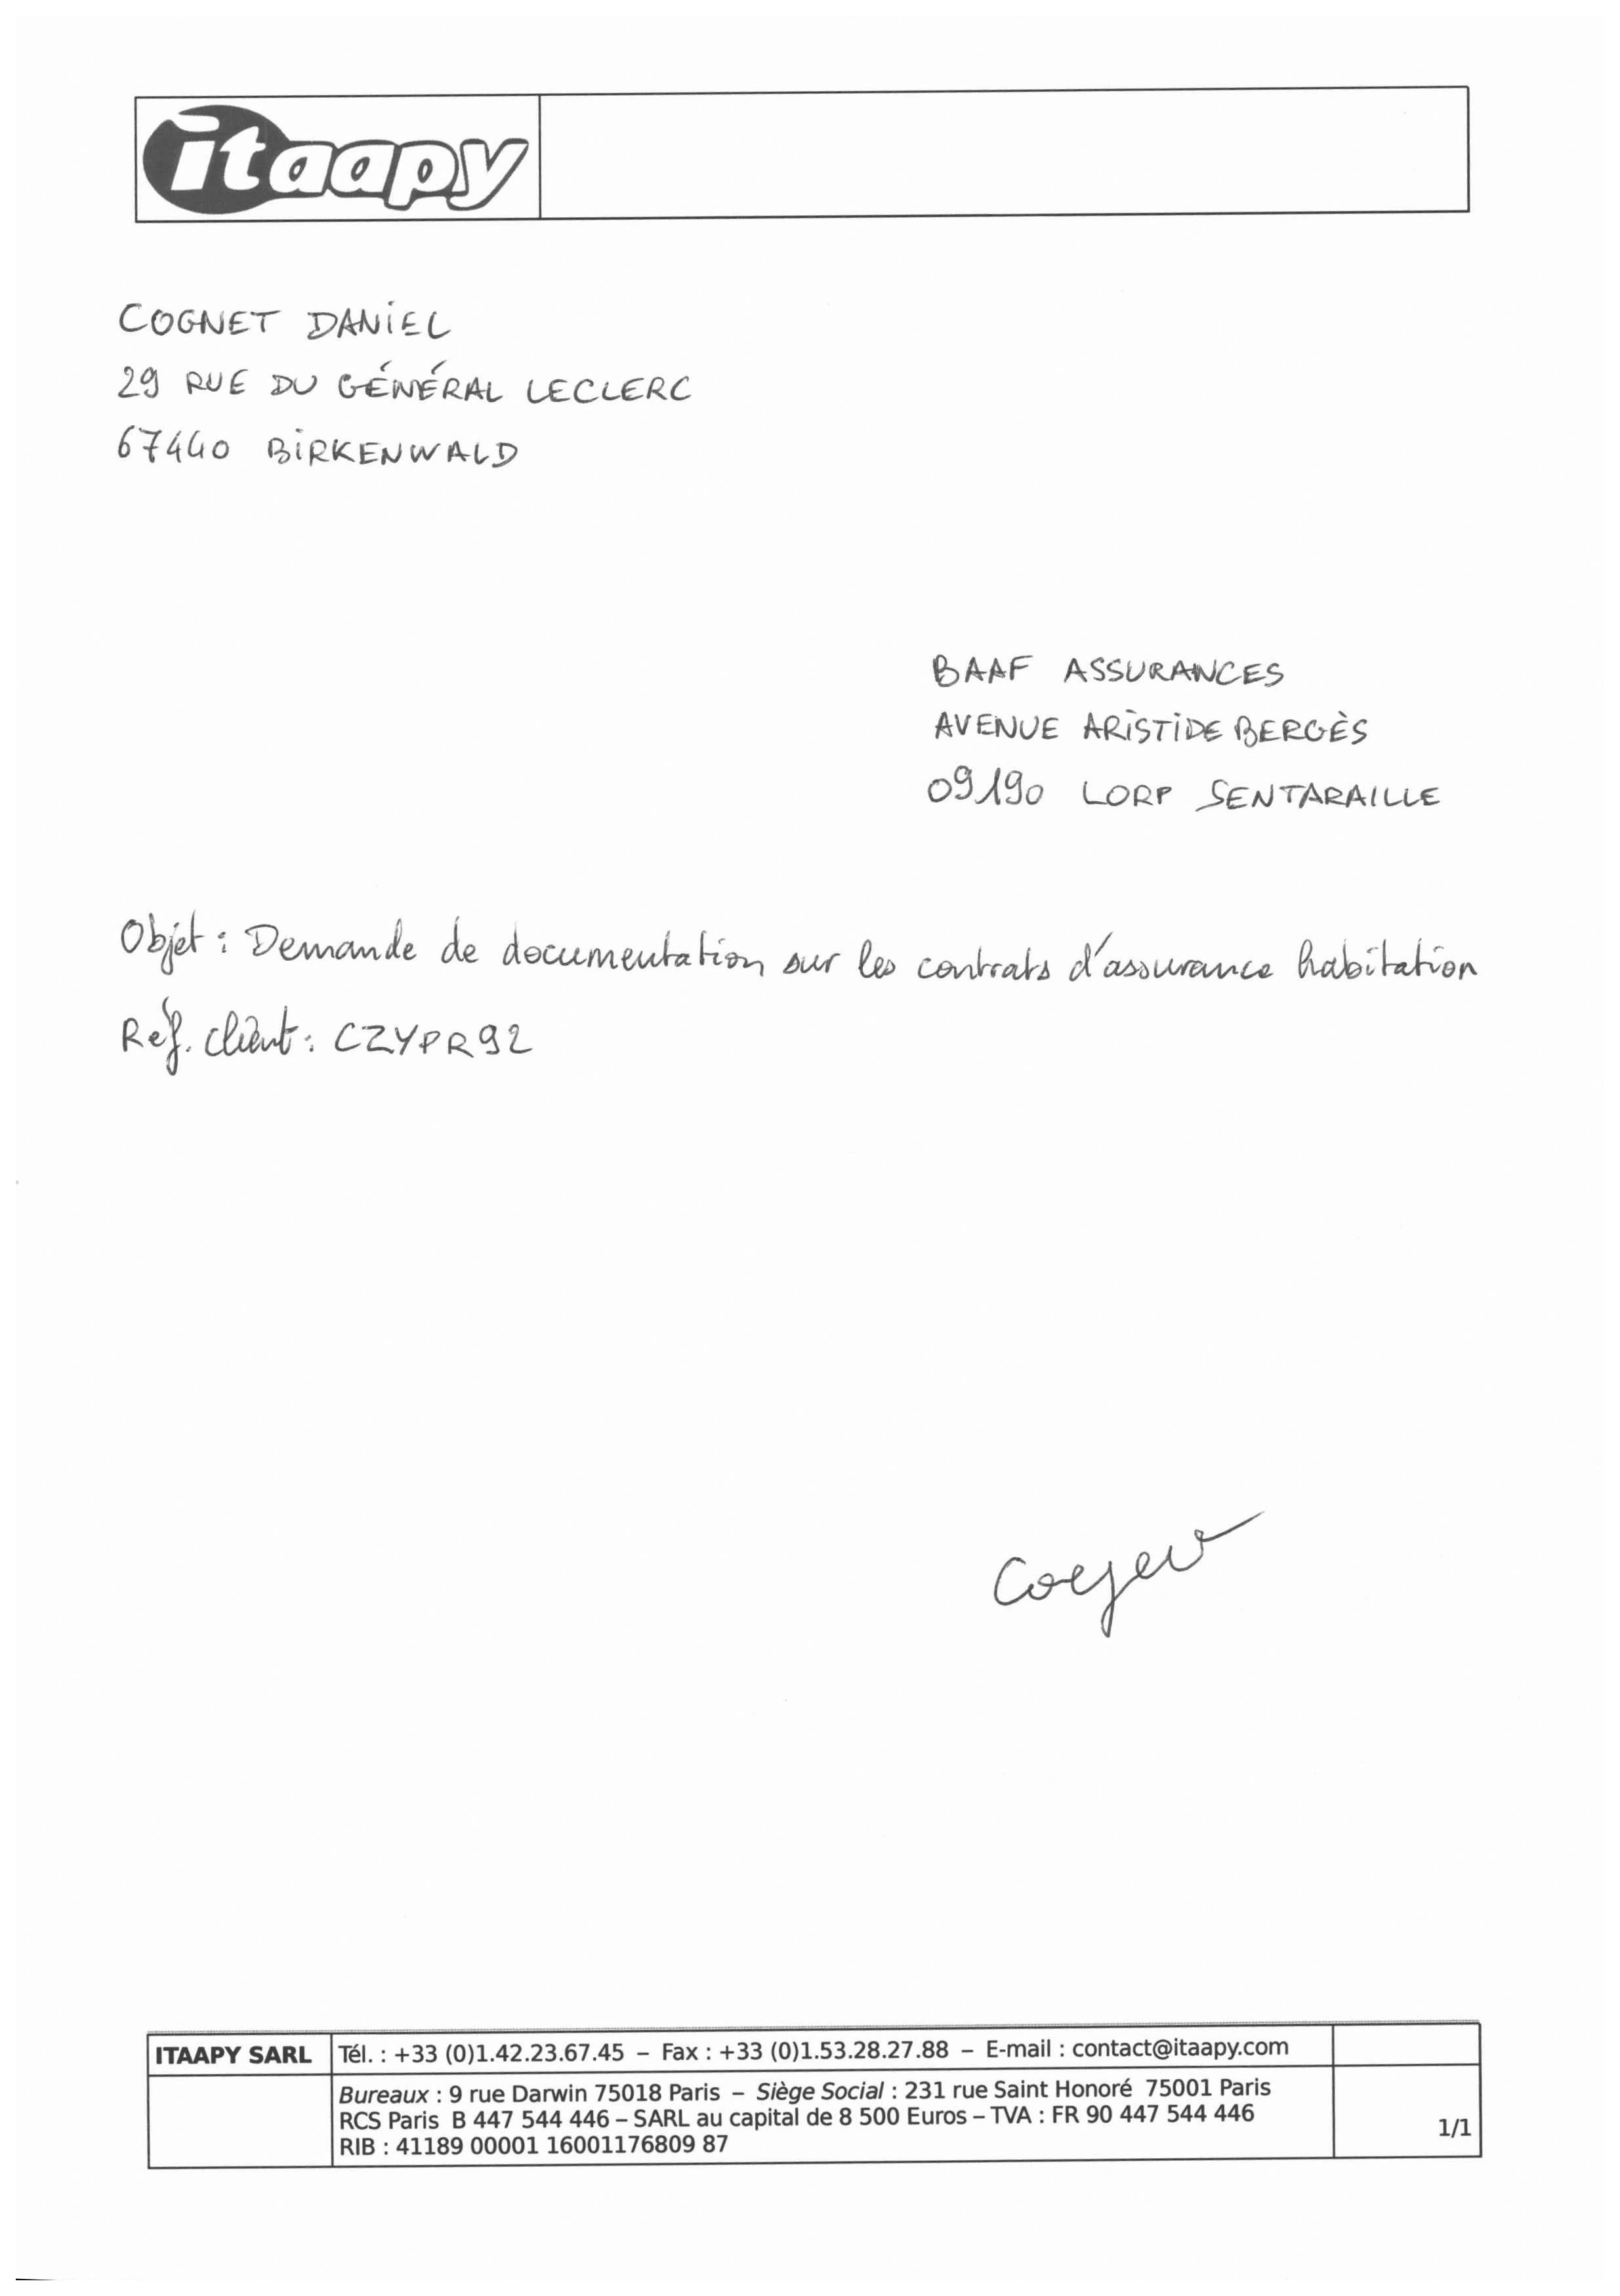 itaapy
COGNET DANIEL
29 RUE DU GÉNÉRAL LECLERC
67440 BIRKENWALD
BAAF ASSURANCES
AVENUE ARISTIDE BERGÈS
09190 LORP SENTARAILLE
Objet : Demande de documentation sur les contrats d'assurance habitation
Réf. client : CZYPR92
ITAAPY SARL Tél. : +33 (0)1.42.23.67.45 – Fax : +33 (0)1.53.28.27.88 – E-mail : contact@itaapy.com
Bureaux : 9 rue Darwin 75018 Paris – Siège Social : 231 rue Saint Honoré 75001 Paris
RCS Paris B 447 544 446 – SARL au capital de 8 500 Euros – TVA : FR 90 447 544 446
RIB : 41189 00001 16001176809 87
1/1